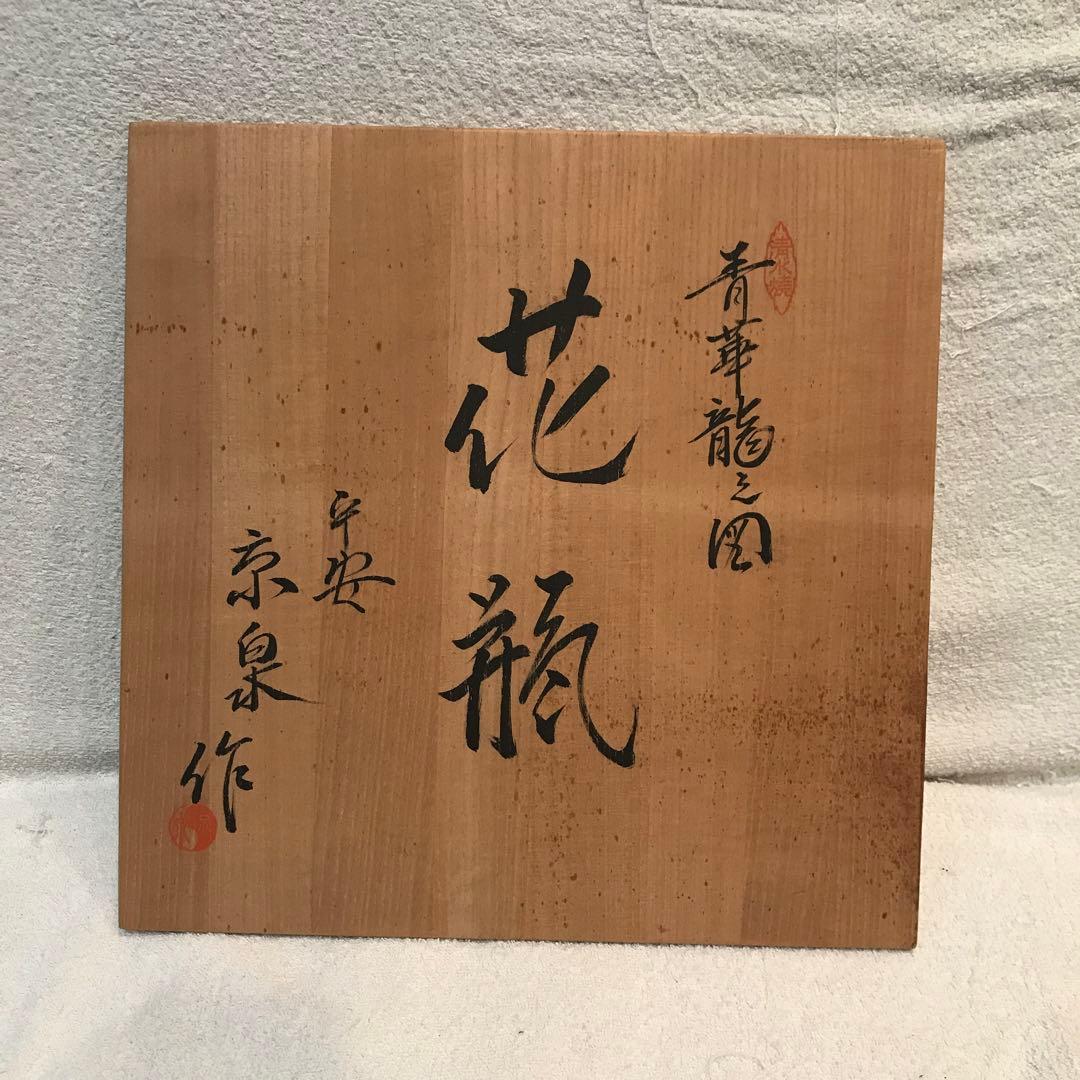 青華龍之図
花瓶
平安
京泉作
清水焼